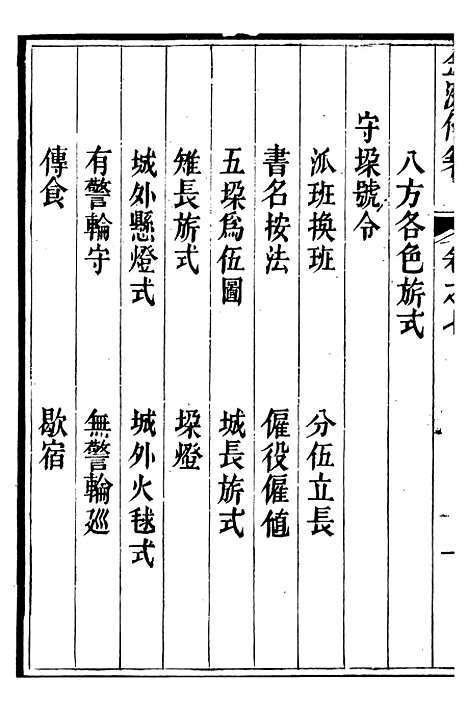 八方各色旂式
守垜號令
派班換班 分伍立長
書名按法 僱役僱值
五垜爲伍圖 城長旂式
雉長旂式 垜燈
城外懸燈式 城外火毬式
有警輪守 無警輪廵
傳食 歇宿